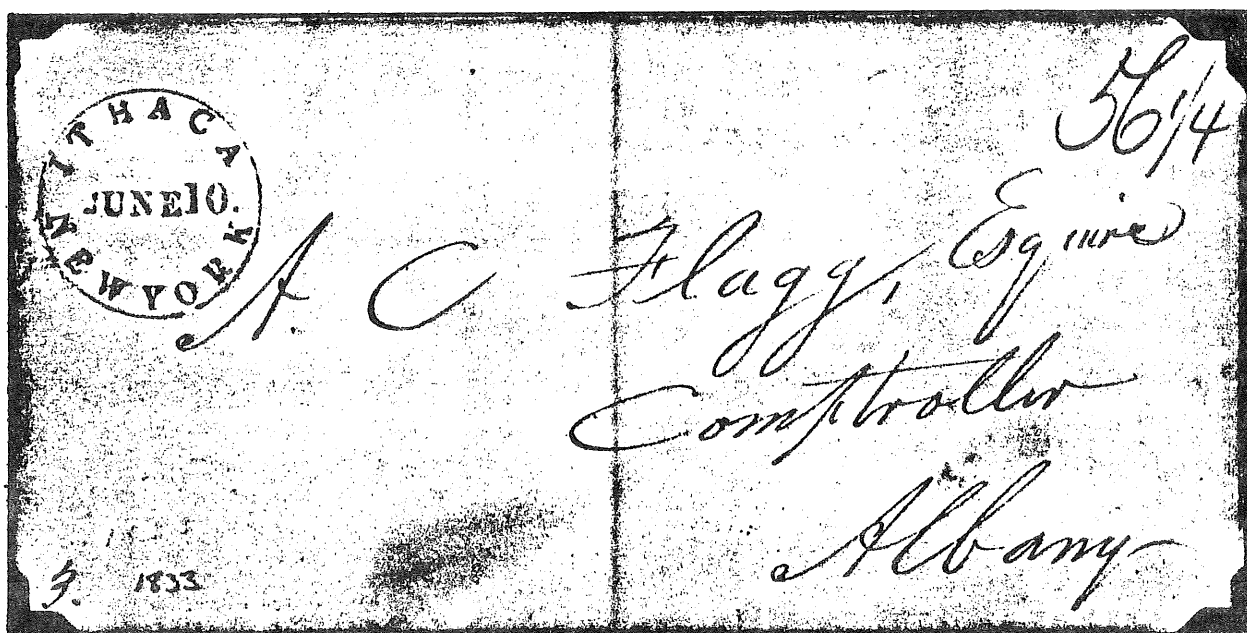 ITHACA
JUNE 10.
NEW YORK
56 1/4
A. C Flagg, Esquire
Comptroller
Albany
1833